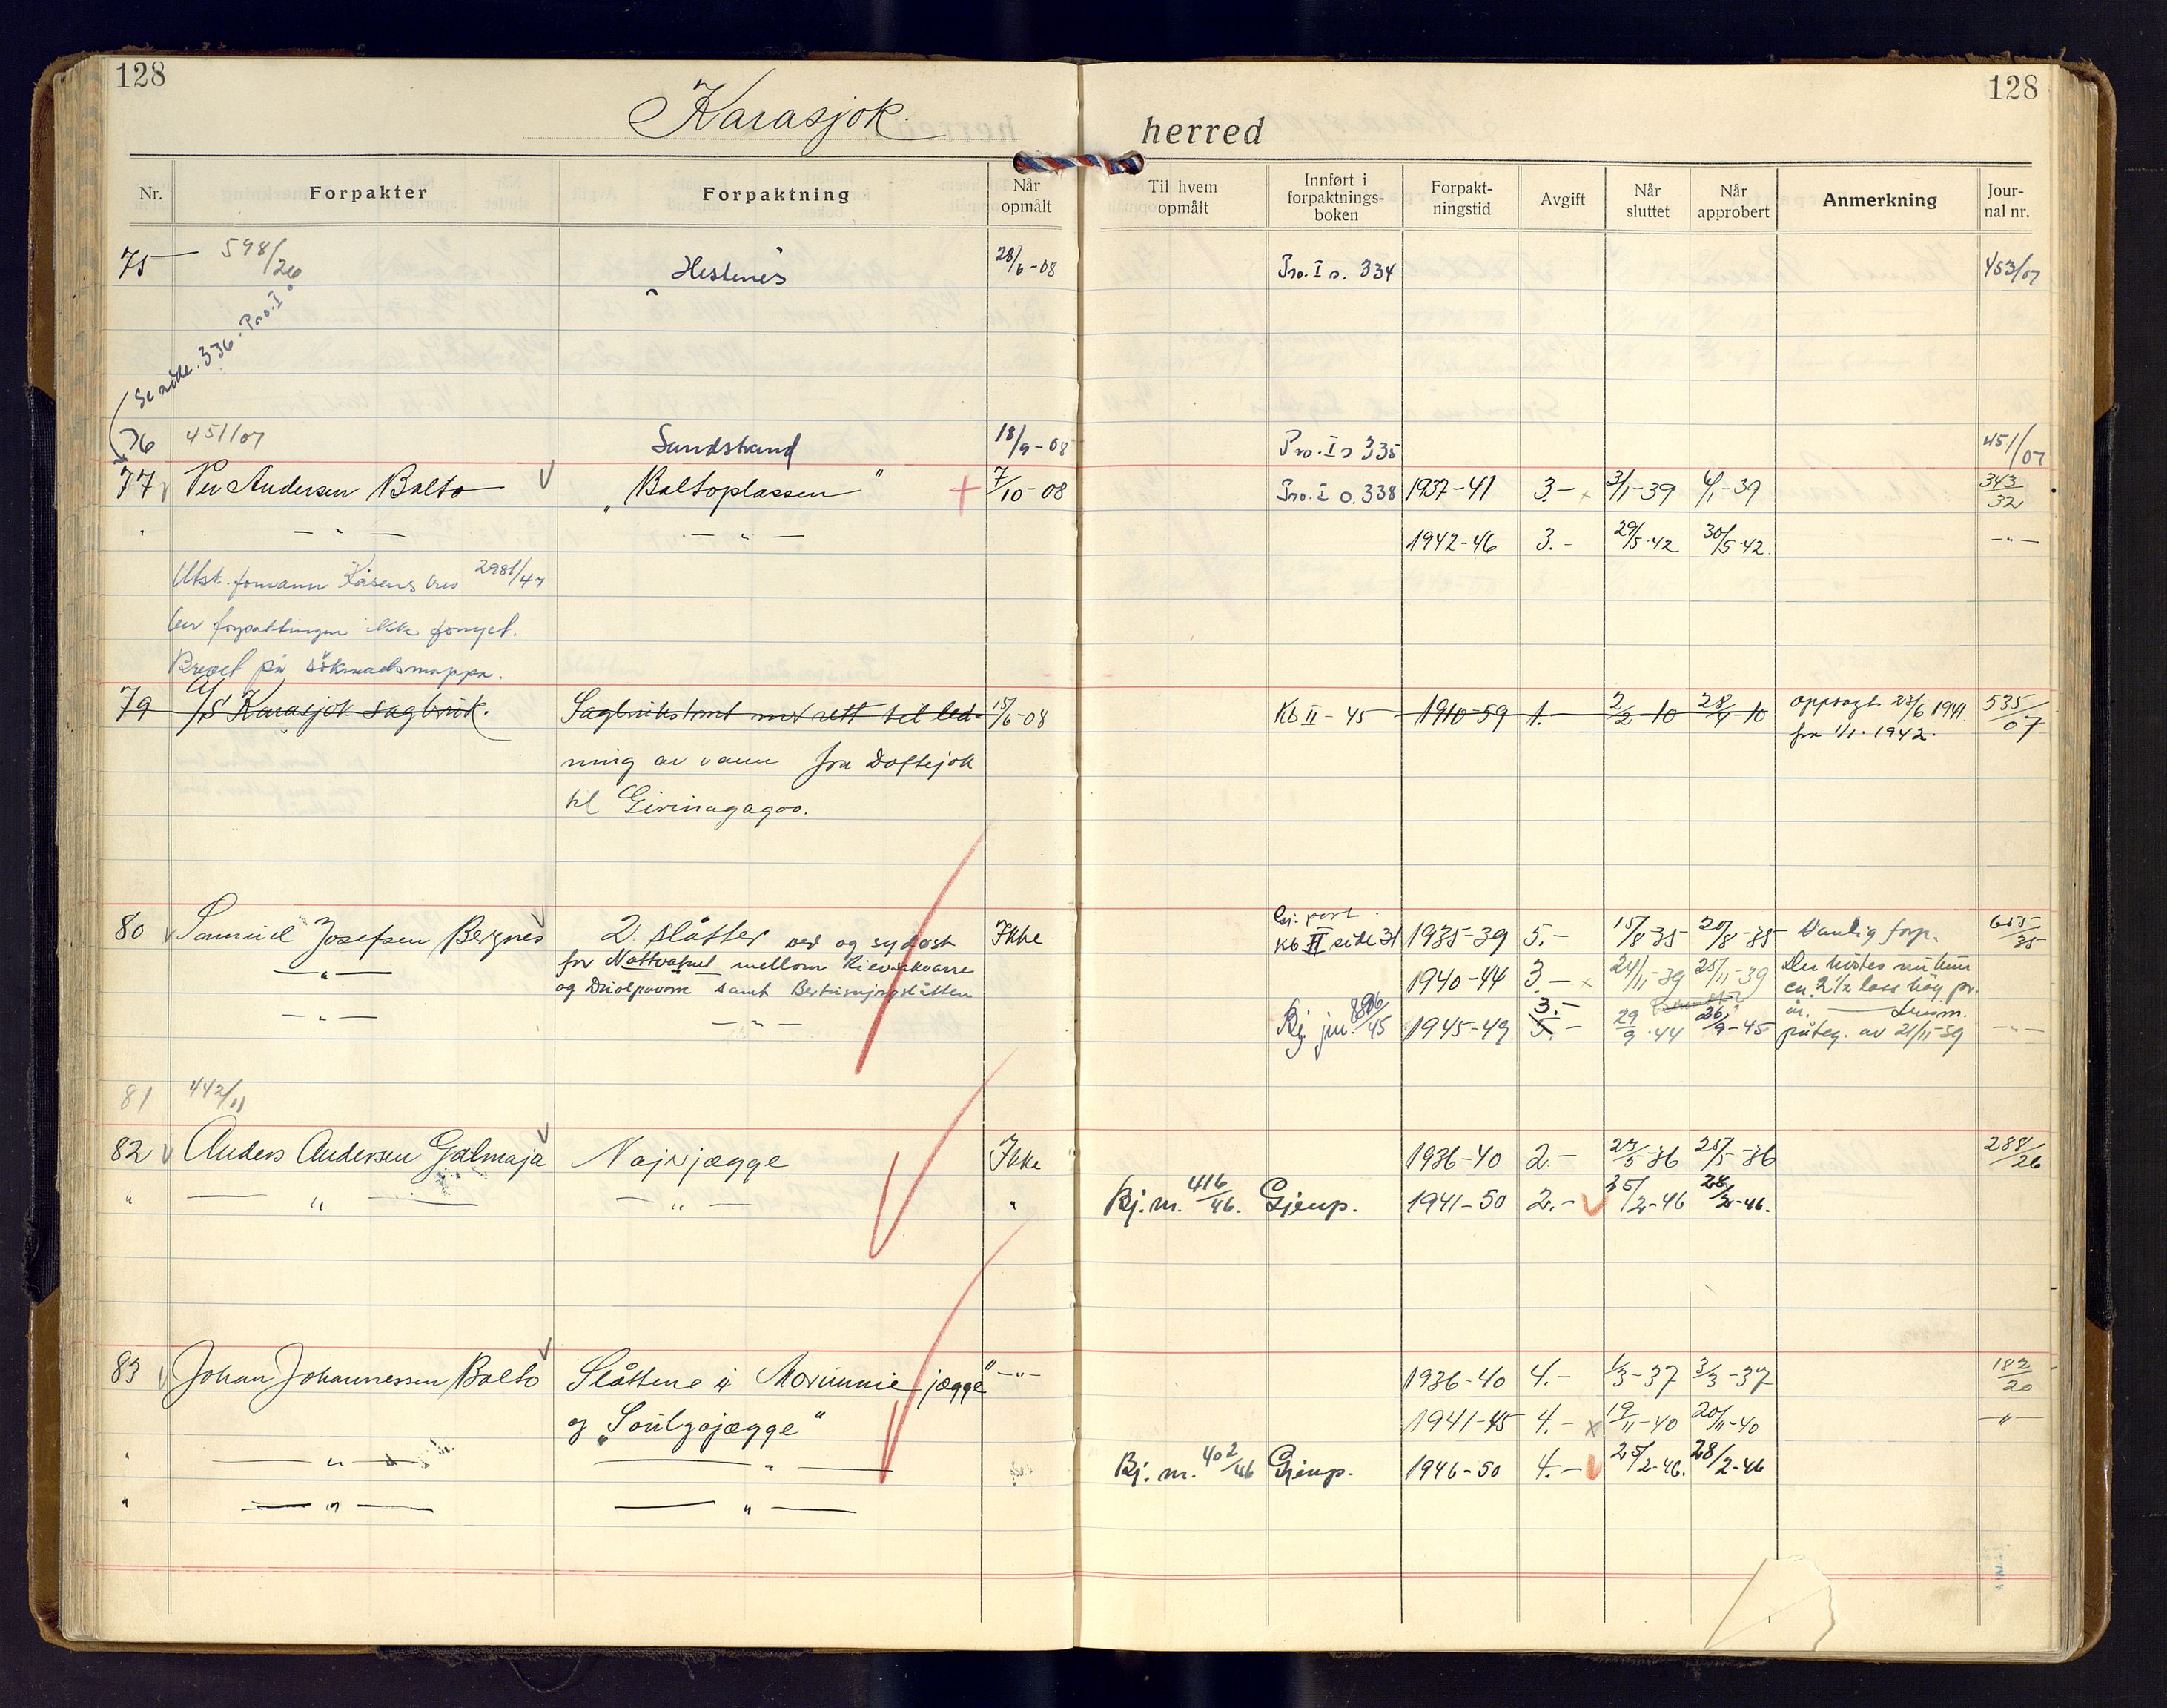 128
128
Karasjok.
herred
Nr.
Forpakter
Forpaktning
Når opmålt
Til hvem opmålt
Innført i forpaktnings-boken
Forpakt-ningstid
Avgift
Når sluttet
Når approbert
Anmerkning
Jour-nal nr.
75 598/26 „Hestenes" 28/6-08 Pro. I s. 334 453/07
Se side 336. Pro. I.
76 451/07 Sundstrand 18/9-08 Pro. I s 335 451/07
77 Per Andersen Balto „Baltoplassen" 7/10-08 Pro. I s. 338 1937-41 3.- 3/1-39 4/1-39 343/32
" — " — — " — 1942-46 3.- 29/5-42 30/5-42. — " —
Utsk. formann Kåsens brev 2981/47
bør forpaktningen ikke fornyet.
Brevet på söknadsmappa.
79 A/S Karasjok sagbruk. Sagbrukstomt med rett til led- 15/6-08 Kb II - 45 1910-59 1. 2/2-10 28/4-10 oppsagt 23/6 1941. 535/07
ning av vann fra Doftejok fra 1/1. 1942.
til Girinagagoo.
80 Samuel Josefsen Bergnes 2 slåtter ved og sydost Ikke Kb II side 31 1935-39 5.- 15/8-35 20/8-35 Vanlig forp. 655/35
— " — for Nattvatnet mellom Rievsakvarre 1940-44 3.- 24/11-39 25/11-39 Der höstes nu kun
og samt ca. 2 1/2 lass höy pr.
— " — — " — Bj. jnr. 896/45 1945-49 3.- 29/9-44 26/9-45 år. — " —
påteg. av 21/11-39
81 442/11
82 Anders Andersen Galmaja Najvjægge Ikke 1936-40 2.- 23/5-36 25/5-36 288/26
" — " — — " — " Bj. nr. 416/46. Gjenp. 1941-50 2.- 25/2-46 28/2-46.
83 Johan Johannessen Balto Slåttene i Morunniejægge" — " — 1936-40 4.- 1/3-37 3/3-37 182/20
og „Soulgojægge" 1941-45 4.- 19/11-40 20/11-40 — " —
" — " — — " — Bj. nr. 402/46 Gjenp. 1946-50 4.- 25/2-46. 28/2-46
" — " — — " —